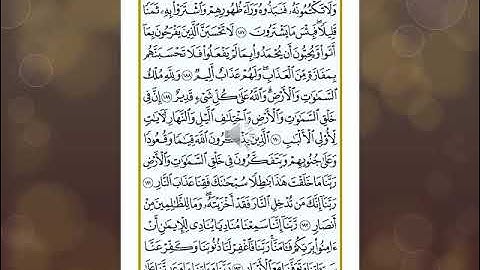 وَلَا تَكْتُمُونَهُۥ فَنَبَذُوهُ وَرَآءَ ظُهُورِهِمْ وَٱشْتَرَوْا۟ بِهِۦ ثَمَنًا
قَلِيلًا ۖ فَبِئْسَ مَا يَشْتَرُونَ ١٨٧ لَا تَحْسَبَنَّ ٱلَّذِينَ يَفْرَحُونَ بِمَآ
أَتَوا۟ وَّيُحِبُّونَ أَن يُحْمَدُوا۟ بِمَا لَمْ يَفْعَلُوا۟ فَلَا تَحْسَبَنَّهُم
بِمَفَازَةٍ مِّنَ ٱلْعَذَابِ ۖ وَلَهُمْ عَذَابٌ أَلِيمٌ ١٨٨ وَلِلَّهِ مُلْكُ
ٱلسَّمَٰوَٰتِ وَٱلْأَرْضِ ۗ وَٱللَّهُ عَلَىٰ كُلِّ شَىْءٍ قَدِيرٌ ١٨٩ إِنَّ فِى
خَلْقِ ٱلسَّمَٰوَٰتِ وَٱلْأَرْضِ وَٱخْتِلَٰفِ ٱلَّيْلِ وَٱلنَّهَارِ لَءَايَٰتٍ
لِّأُو۟لِى ٱلْأَلْبَٰبِ ١٩٠ ٱلَّذِينَ يَذْكُرُونَ ٱللَّهَ قِيَٰمًا وَقُعُودًا
وَعَلَىٰ جُنُوبِهِمْ وَيَتَفَكَّرُونَ فِى خَلْقِ ٱلسَّمَٰوَٰتِ وَٱلْأَرْضِ
رَبَّنَا مَا خَلَقْتَ هَٰذَا بَٰطِلًا سُبْحَٰنَكَ فَقِنَا عَذَابَ ٱلنَّارِ
١٩١ رَبَّنَآ إِنَّكَ مَن تُدْخِلِ ٱلنَّارَ فَقَدْ أَخْزَيْتَهُۥ ۖ وَمَا لِلظَّٰلِمِينَ مِنْ
أَنصَارٍ ١٩٢ رَّبَّنَآ إِنَّنَا سَمِعْنَا مُنَادِيًا يُنَادِى لِلْإِيمَٰنِ أَنْ
ءَامِنُوا۟ بِرَبِّكُمْ فَـَٔامَنَّا ۚ رَبَّنَا فَٱغْفِرْ لَنَا ذُنُوبَنَا وَكَفِّرْ عَنَّا